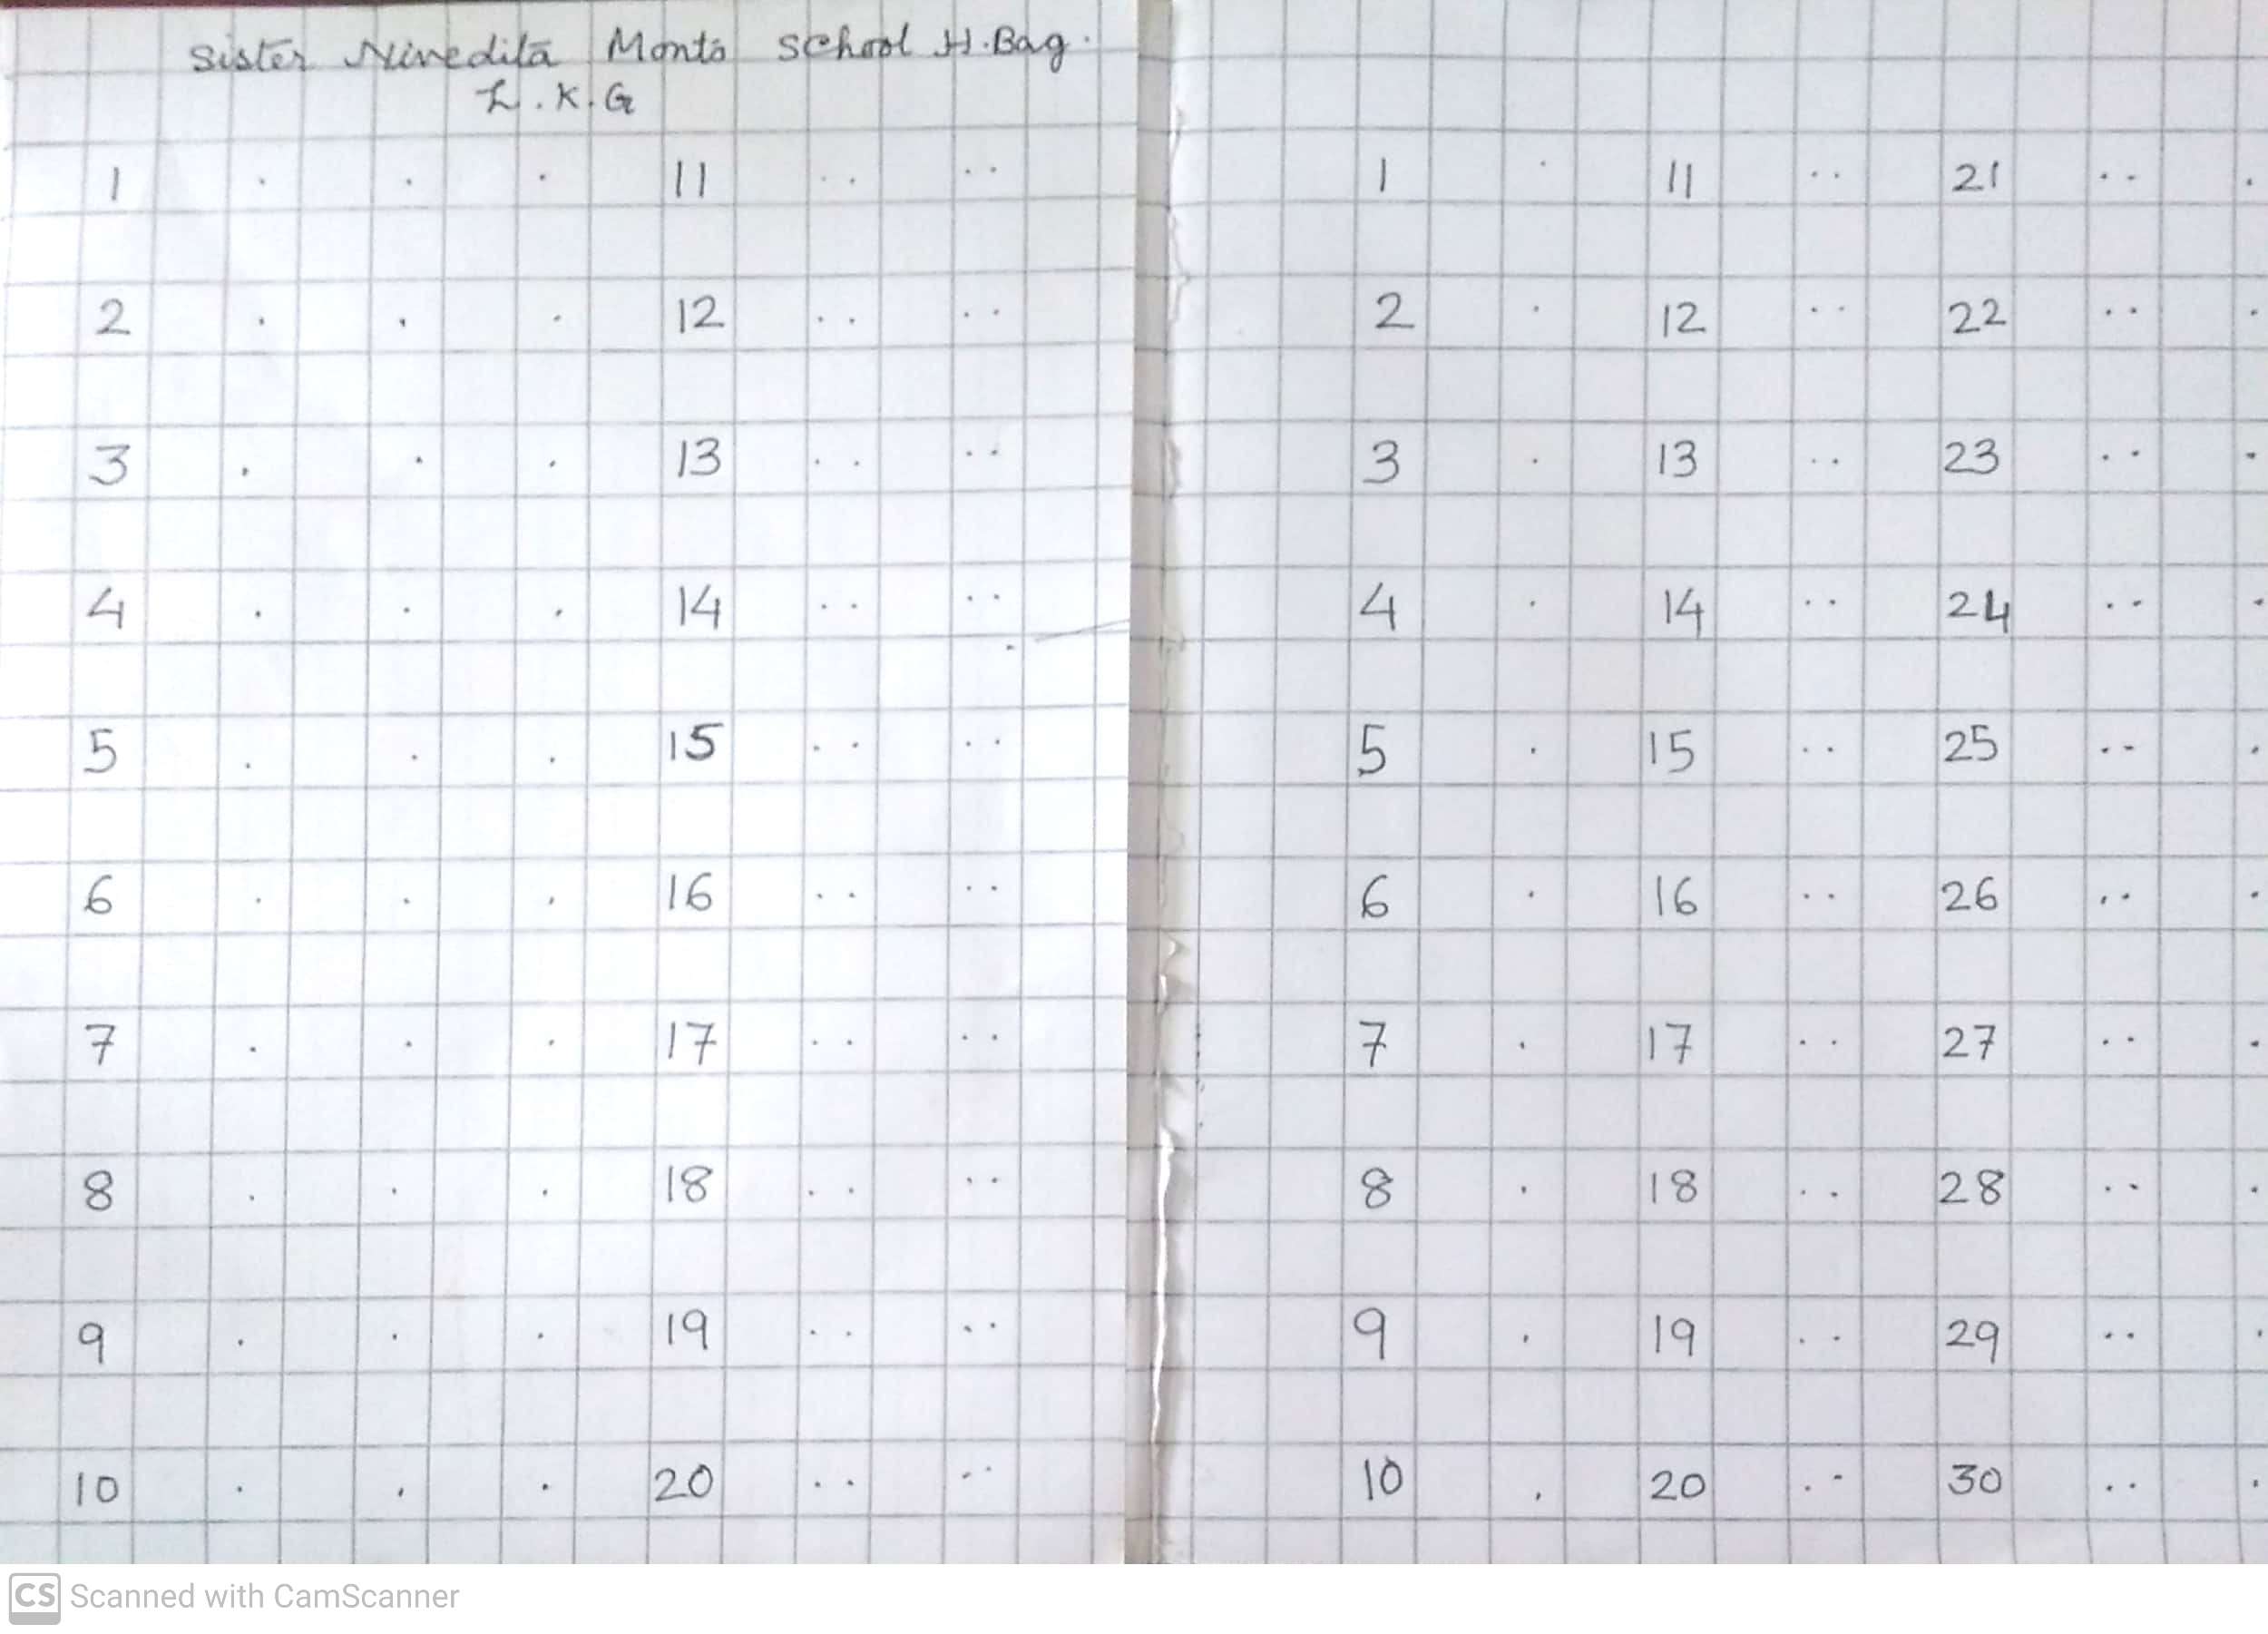 Sister Nivedita Monto School H.Bag.
L.K.G
1 . . . 11 .. ..
2 . . . 12 .. ..
3 . . . 13 .. ..
4 . . . 14 .. ..
5 . . . 15 .. ..
6 . . . 16 .. ..
7 . . . 17 .. ..
8 . . . 18 .. ..
9 . . . 19 .. ..
10 . . . 20 .. ..
1 . 11 .. 21 .. .
2 . 12 .. 22 .. .
3 . 13 .. 23 .. .
4 . 14 .. 24 .. .
5 . 15 .. 25 .. .
6 . 16 .. 26 .. .
7 . 17 .. 27 .. .
8 . 18 .. 28 .. .
9 . 19 .. 29 .. .
10 . 20 .. 30 .. .
CS Scanned with CamScanner